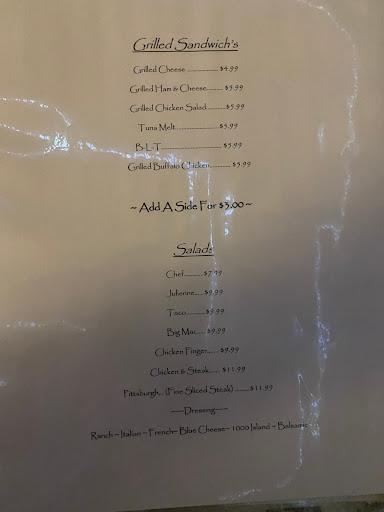 Grilled Sandwich's
Grilled Cheese .................. $4.99
Grilled Ham & Cheese......... $5.99
Grilled Chicken Salad..........$5.99
Tuna Melt........................$5.99
B-L-T.................................. $5.99
Grilled Buffalo Chicken............ $5.99
~ Add A Side For $3.00 ~
Salads
Chef.......... $7.99
Julienne..... $9.99
Taco..........$9.99
Big Mac..... $9.99
Chicken Finger...... $9.99
Chicken & Steak...... $11.99
Pittsburgh... (Fine Sliced Steak) ........$11.99
-----Dressing-----
Ranch ~ Italian ~ French~ Blue Cheese~ 1000 Island ~ Balsamic